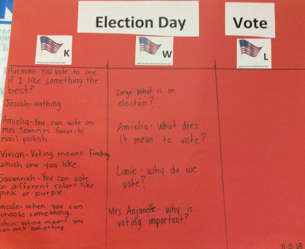 Election Day
Vote
K
W
L
Harmoni- You vote to see
if I like something the
best?
Josiah- nothing
Amielia- You can vote on
Mrs Jeanne's favorite
nail polish.
Vivian- Voting means finding
which one you like.
Savannah- You can vote
on different colors like
pink or purple.
Lincoln- when you can
choose something.
voting means you
can pick something
Jorge- What is an
election?
Amielia- what does
it mean to vote?
Lanie- why do we
vote?
Mrs. Anjanette- why is
voting important?